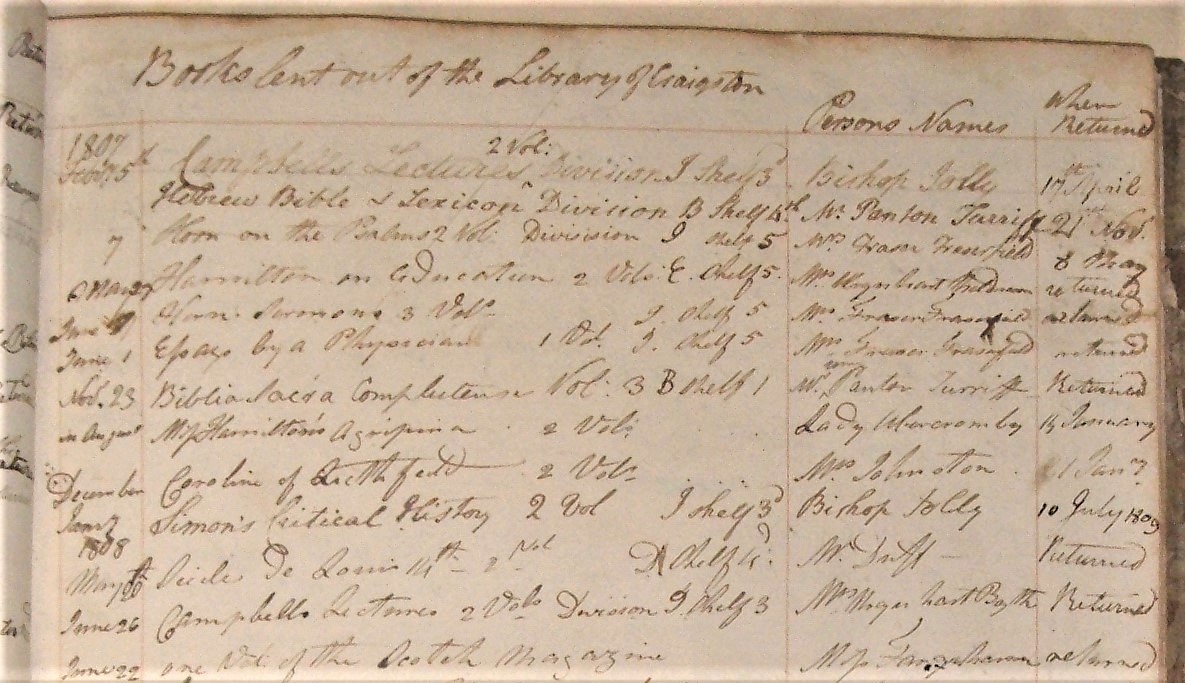 Books lent out of the Library of Craigston
Persons Names When Returned
1807
Feby. 5th Campbells Lectures 2 Vol: Division I Shelf 3d Bishop Jolly 17th April
Hebrew Bible & Lexicon Division B Shelf 4th Mr. Panton Turriff 21st Nov.
7 Horn on the Psalms 2 Vol. Divission I shelf 5 Mrs Fraser Fraserfield 8 May
May Hamilton on Education 2 Vols. E. Shelf 5. Mrs. Urquhart returned
June Horn Sermons 3 Vols. I. Shelf 5 Mrs Fraser Fraserfield returned
June 1 Essays by a Physician 1 Vol. I. Shelf 5 Mrs Fraser Fraserfield returned
Nov. 23 Biblia Sacra Complectense Vol: 3 B shelf 1 Mr. Panton Turriff Returned
in August Miss Hamilton's Agripina 2 Vols Lady Abercromby 14 January
December Caroline of Licthfield 2 Vols Mrs Johnston 1 Jany.
Jany Simon's Critical History 2 Vol I shelf 3d Bishop Jolly 10 July 1809
1808
May Siecles De Louis 14th 2 Vol D Shelf 4: Mr. Returned
June 26 Campbells Lectures 2 Vols Division I. Shelf 3 Mrs Urquhart Byth Returned
June 22 one Vol. of the Scotch Magazine Miss returned